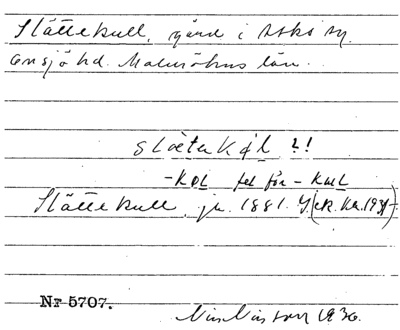 Slättekull, gård i Askö sn.
Onsjö hd. Malmöhus län.
slætekol ?!
-KOL fel för - KULL
Slättekull, jr. 1881. 
Nr 5707.
Nils Nilsson 1936.